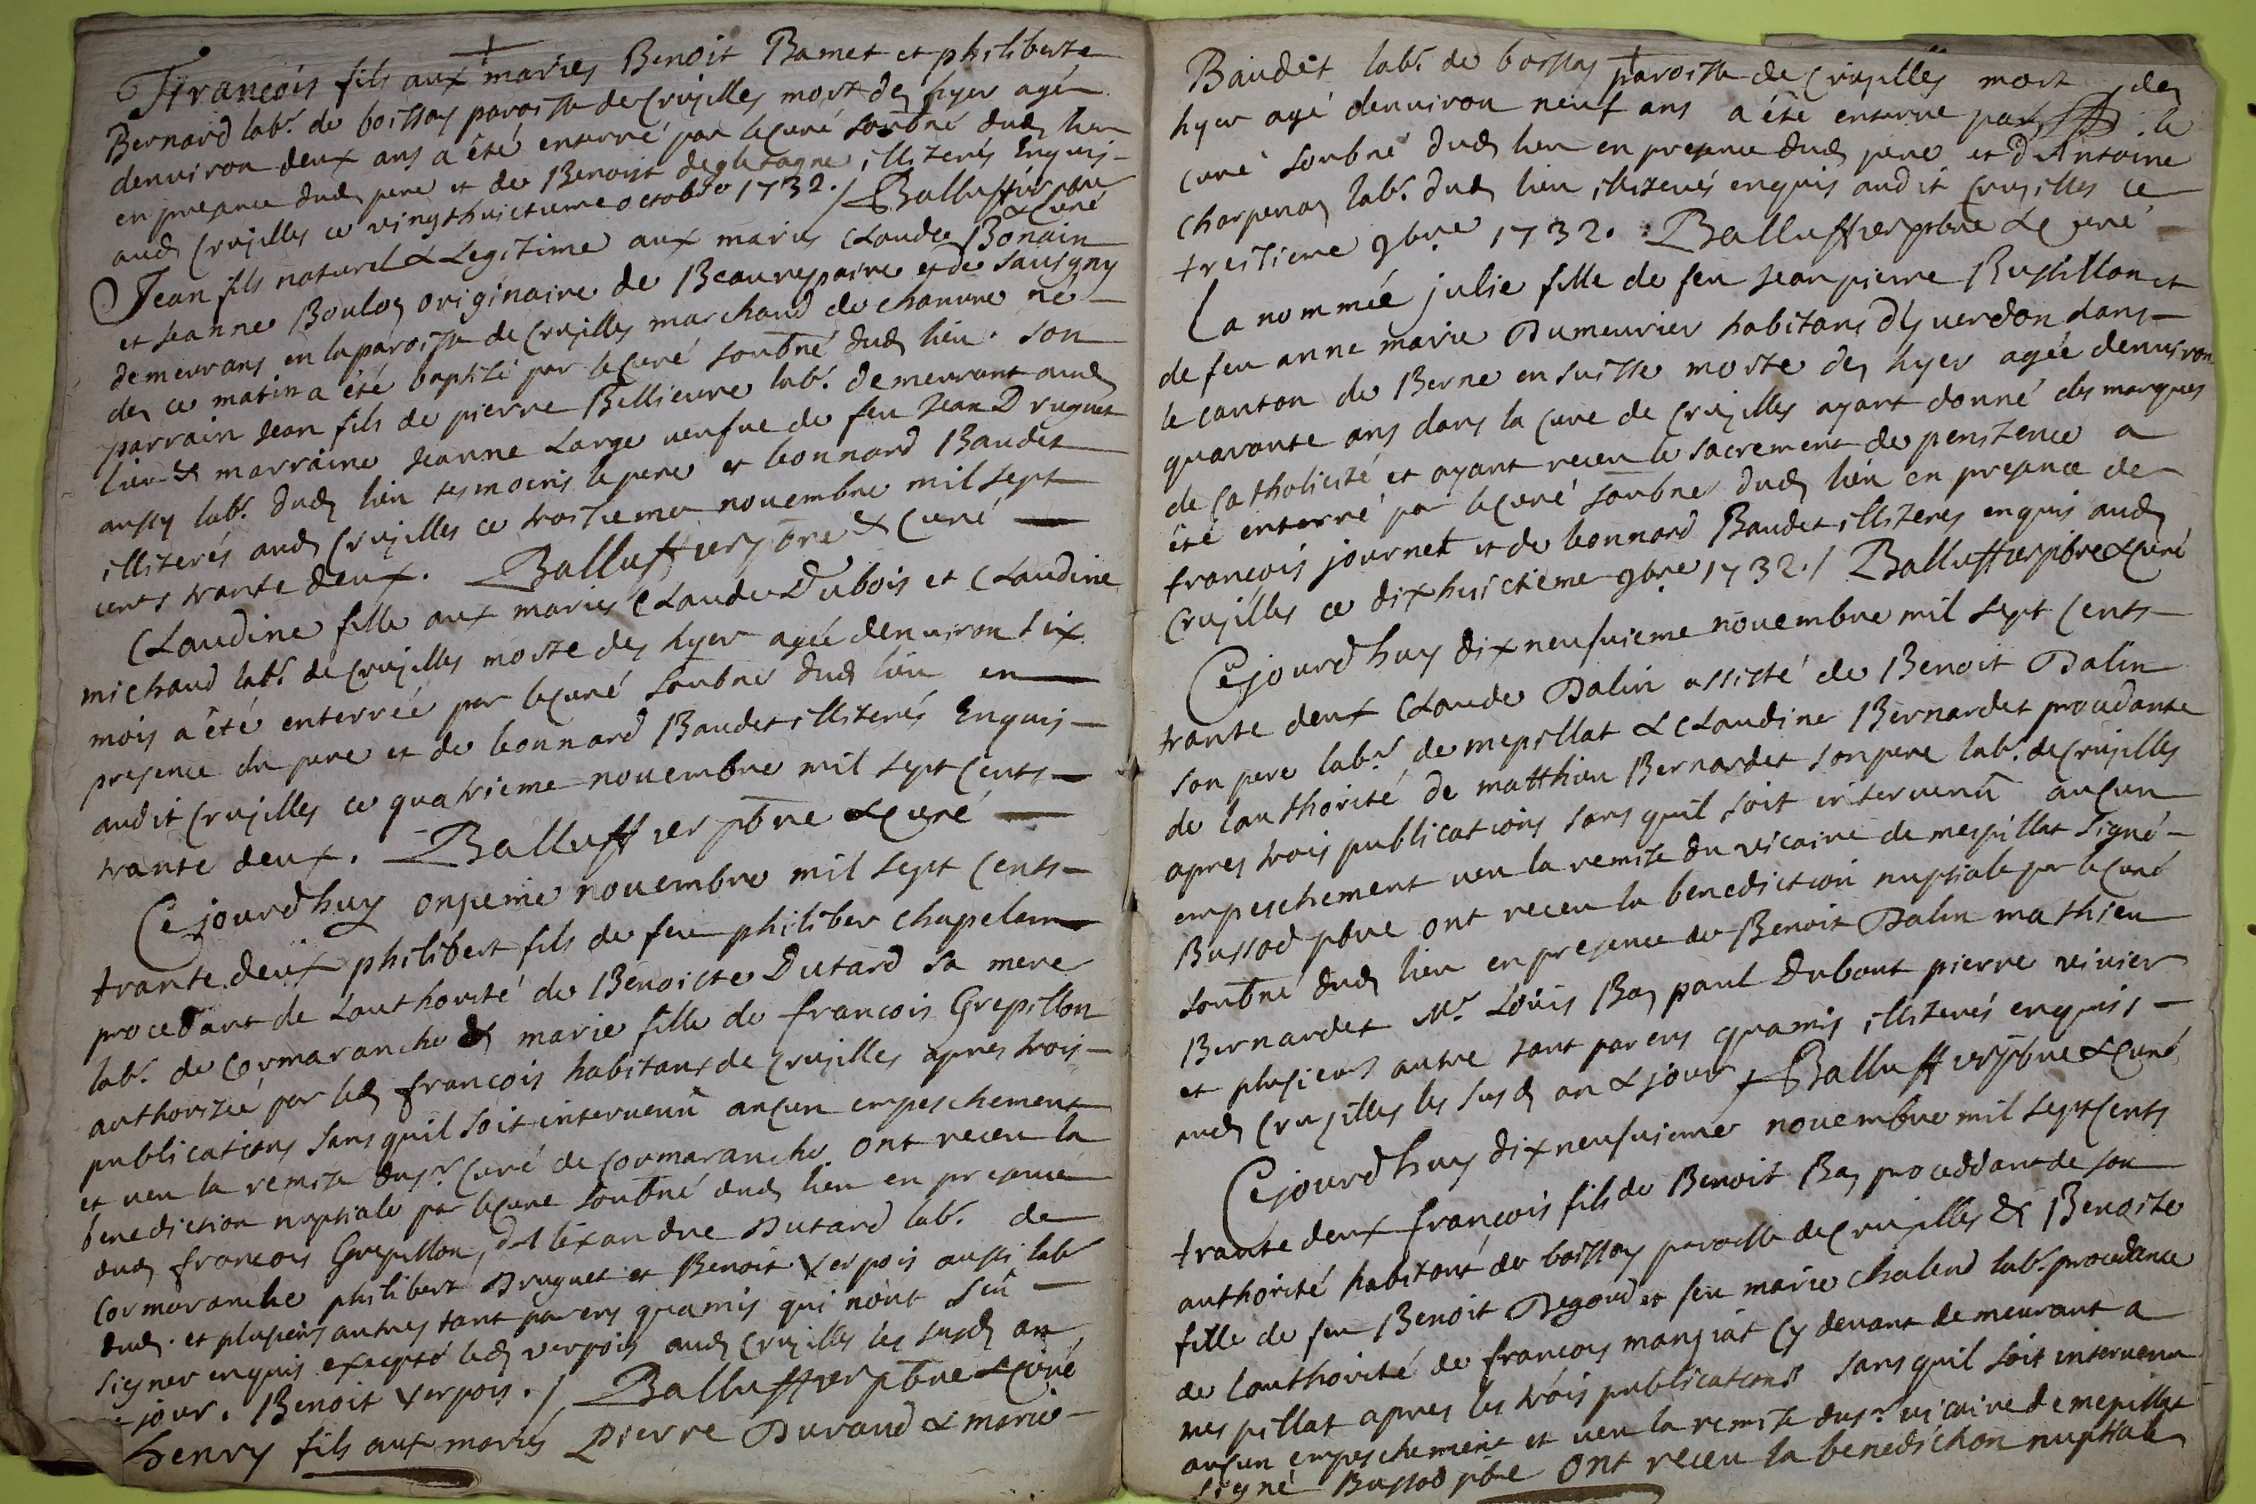 François fils aux mariés Benoit Bamet et philiberte
Bernard labr. de boissay paroisse de Crusilles mort des hyer agé
denuiron deux ans a êté enterré par le Curé soubné dud lieu
en presance dud pere et de Benoist degletagne illiterés Enquis
aud Crusilles ce vingthuictieme octobre 1732. / Balluffier pbre & Curé
Jean fils naturel & Legitime aux mariés Claude Bonain
et Jeanne Boulos originaire de Beaurepaire et de Sauigny
demeurans en la paroisse de Crusilles marchand de chanure né
des ce matin a été baptisé par le Curé soubné dud lieu. son
parrain Jean fils de pierre Bellieure labr. demeurant aud
lieu & marraine Jeanne Large veufue de feu Jean Druguet
aussy labr. dud lieu tesmoins le pere et leonnard Baudet
illiterés aud Crusilles ce troisieme novembre mil sept
cents trante deux. Balluffier pbre & Curé
Claudine fille aux mariés Claude Dubois et Claudine
michaud labr. de Crusilles morte des hyer agée denuiron six
mois a êté enterrée par le Curé soubné dud lieu en
presence du pere et de leonnard Baudet illiterés Enquis
audit Crusilles ce quatrieme novembre mil sept Cents
trante deux. Balluffier pbre & Curé
Cejourdhuy onzieme nouembre mil sept Cents
trante deux philibert fils de feu philiber Chapelan
procedant de Lauthorité de Benoiste Dutard sa mere
labr. de Cormaranche & marie fille de francois Grepillon
authorisée par led francois habitans de Crusilles apres trois
publications sans quil soit interuenu aucun empeschement
et ueu la remise du sr. Curé de Cormaranche ont receu la
benediction nuptiale par le Cure soubné dud lieu en presence
dud francois Grepillon, d'Alexandre Dutard labr. de
Cormaranche philibert Druguet et Benoit Verpois aussi labr
dud. et plusieurs autres tant parens quamis qui nont sçu
signer enquis excepté led verpois aud Crusilles les susd an
& jour. Benoit Verpois. / Balluffier pbre & Curé
Henry fils aux mariés Pierre Durand & marie
Baudet labr. de boissay paroisse de Crusilles mort des
hyer agé denuiron neuf ans a êté enterré par le
curé soubné dud lieu en presence dud pere et dAntoine
Charpenay labr. dud lieu illiterés enquis audit Crusilles ce
treisieme 9bre 1732. Balluffier pbre & Curé
La nommée julie fille de feu Jeanpierre Bussillon et
de feu anne marie Dumeurier habitans dYuerdon dans
le canton de Berne en suisse morte des hyer agée denuiron
quarante ans dans la Cure de Crusilles ayant donné des marques
de Catholicité et ayant receu le sacrement de penitence a
été enterré par le Curé soubné dud lieu en presence de
françois journet et de leonnard Baudet illiteres enquis aud
Crusilles ce dixhuictieme 9bre 1732. / Balluffier pbre & Curé
Cejourdhuy dixneufuieme nouembre mil sept Cents
trante deux Claude Dalin assisté de Benoit Dalin
son pere labr. de mepillat & Claudine Bernardet procedante
de lauthorité de matthieu Bernardet son pere labr. de Crusilles
apres trois publications sans quil soit interuenû aucun
empeschement ueu la remise du vicaire de mespillat signé
Bussod pbre ont receu la benediction nuptiale par le Curé
soubné dud lieu en presence de Benoit Dalin mathieu
Bernardet Mr. Loüis Bay paul Dubout pierre viuier
et plusieurs autre tant parens quamis illiterés enquis
aud Crusilles les susd an & jour. / Balluffier pbre & Curé
Cejourdhuy dixneufuieme nouembre mil sept Cents
trante deux françois fils de Benoit Bay proceddant de son
authorité habitant de boissay paroisse de Crusilles & Benoite
fille de feu Benoit Degoud et feu marie chaland labr. procedante
de lauthorité de francois mangiat Cy deuant demeurant a
mespillat apres les trois publications sans quil soit interuenu
aucun empeschement et ueu la remise du sr. vicaire de mepillat
signé Bussod pbre ont receu la benediction nuptiale